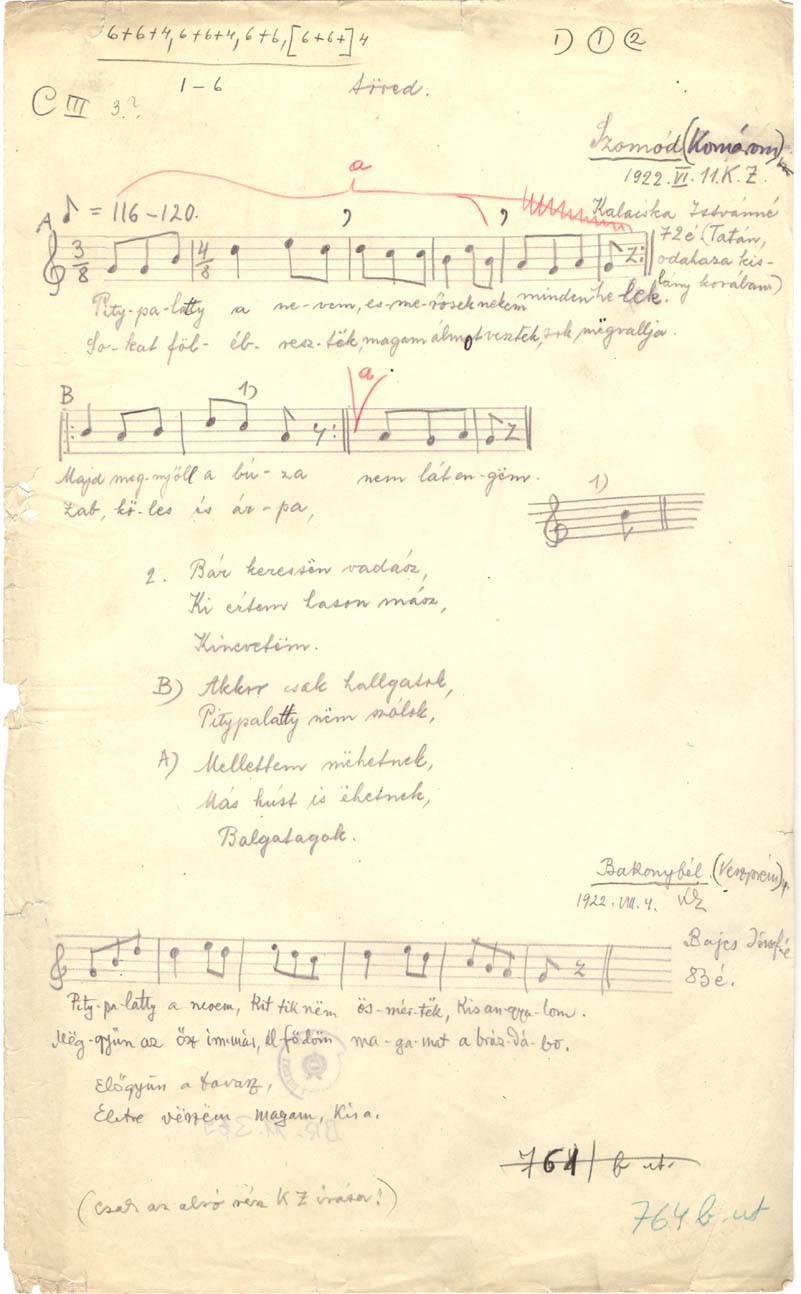 6+6+4, 6+6+4, 6+6, [6+6+] 4
1) ① ②
1–6
C III 3.?
töred.
Szomód (Komárom)
1922. VI. 11. K. Z.
a
♪ = 116–120.
Kalacska Istvánné
72é (Tatán,
odahaza kis-
lány korában)
A
3/8 4/8
Pity-pa-latty a ne-vem, es-me-rősek nekem minden he lek.
So-kat föl-éb-resz-tők, magam álmot vesztek, sok mëgvallja.
B
1)
a
Majd meg-nyőll a bú-za nem lát en-gëm.
Zab, kö-les is ár-pa,
1)
2. Bár keressën vadász,
Ki értem hason mász,
Kinevetëm.
B) Akkor csak hallgatok,
Pitypalatty nëm szólok,
A) Mellettem mëhetnek,
Más húst is ëhetnek,
Balgatagok.
Bakonybél. (Veszprém)
1922. VIII. 4. KZ
Bajcs Józsefné
83é.
Pity-pa-latty a nevem, Kit tik nëm ös-mér-tëk, Kis an-gya-lom.
Mëg-gyün az ősz im-már, el födöm ma-ga-mat a bráz-dá-bo.
Előgyün a tavasz,
Életre vëszëm magam, Kis a.
764 b ut.
(csak az alsó rész K Z írása!)
764 b ut